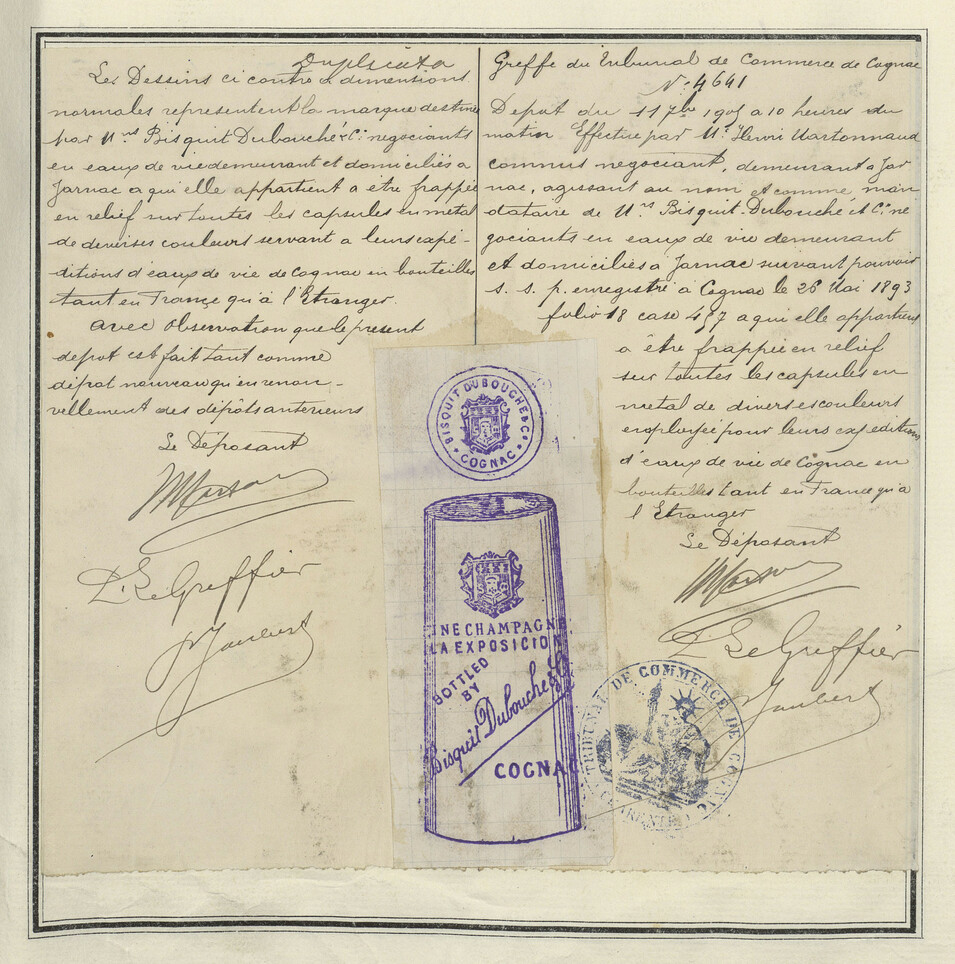 Duplicata
Les Dessins ci contre a dimensions
normales representent la marque destinée
par Mrs Bisquit Dubouché & Cie negociants
en eaux de vie demeurant et domiciliés a
Jarnac a qui elle appartient a être frappée
en relief sur toutes les capsules en metal
de diverses couleurs servant a leurs expé-
ditions d'eaux de vie de Cognac en bouteilles
tant en France qu'à l'Etranger.
avec observation que le present
depot est fait tant comme
dépot nouveau qu'en renou-
vellement des dépôts anterieurs
Le Déposant
Le Greffier
Jaubert
Greffe du Tribunal de Commerce de Cognac
No 4641
Depot du 11 7bre 1905 a 10 heures du
matin Effectué par Mr Henri Martonnaud
commis negociant, demeurant a Jar
nac, agissant au nom et comme man
dataire de Mrs Bisquit-Dubouché et Cie né
gociants en eaux de vie demeurant
et domiciliés à Jarnac suivant pouvoir
s. s. p. enregistré à Cognac le 26 Mai 1893
folio 18 case 457 a qui elle appartient
a être frappée en relief
sur toutes les capsules en
metal de diverses couleurs
employée pour leurs expeditions
d'eaux de vie de Cognac en
bouteilles tant en France qu'a
l'Etranger
Le Déposant
Le Greffier
Jaubert
BISQUIT DUBOUCHÉ & Co
COGNAC
INE CHAMPAGNE
LA EXPOSICION
BOTTLED
BY
Bisquit Dubouché & Co
COGNAC
TRIBUNAL DE COMMERCE DE COGNAC
CHARENTE